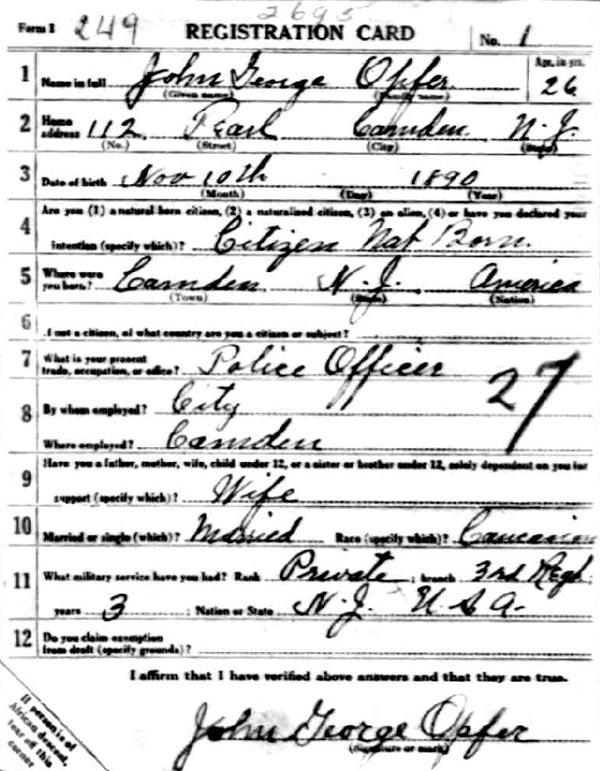 2695
Form 1 249 REGISTRATION CARD No. 1
1 Name in full John George Opfer Age, in yrs. 26
(Given name) (Family name)
2 Home address 112 Pearl Camden N. J.
(No.) (Street) (City) (State)
3 Date of birth Nov 10th 1890
(Month) (Day) (Year)
4 Are you (1) a natural born citizen, (2) a naturalized citizen, (3) an alien, (4) or have you declared your
intention (specify which)? Citizen Nat Born.
5 Where were you born? Camden N. J. America
(Town) (State) (Nation)
6 If not a citizen, of what country are you a citizen or subject?
7 What is your present trade, occupation, or office? Police Officer
27
8 By whom employed? City
Where employed? Camden
9 Have you a father, mother, wife, child under 12, or a sister or brother under 12, solely dependent on you for
support (specify which)? Wife
10 Married or single (which)? Married Race (specify which)? Caucasian
11 What military service have you had? Rank Private ; branch 3rd Regt.
years 3 ; Nation or State N. J. U. S. A.
12 Do you claim exemption from draft (specify grounds)?
I affirm that I have verified above answers and that they are true.
John George Opfer
(Signature or mark)
If person is of
African descent,
tear off this
corner